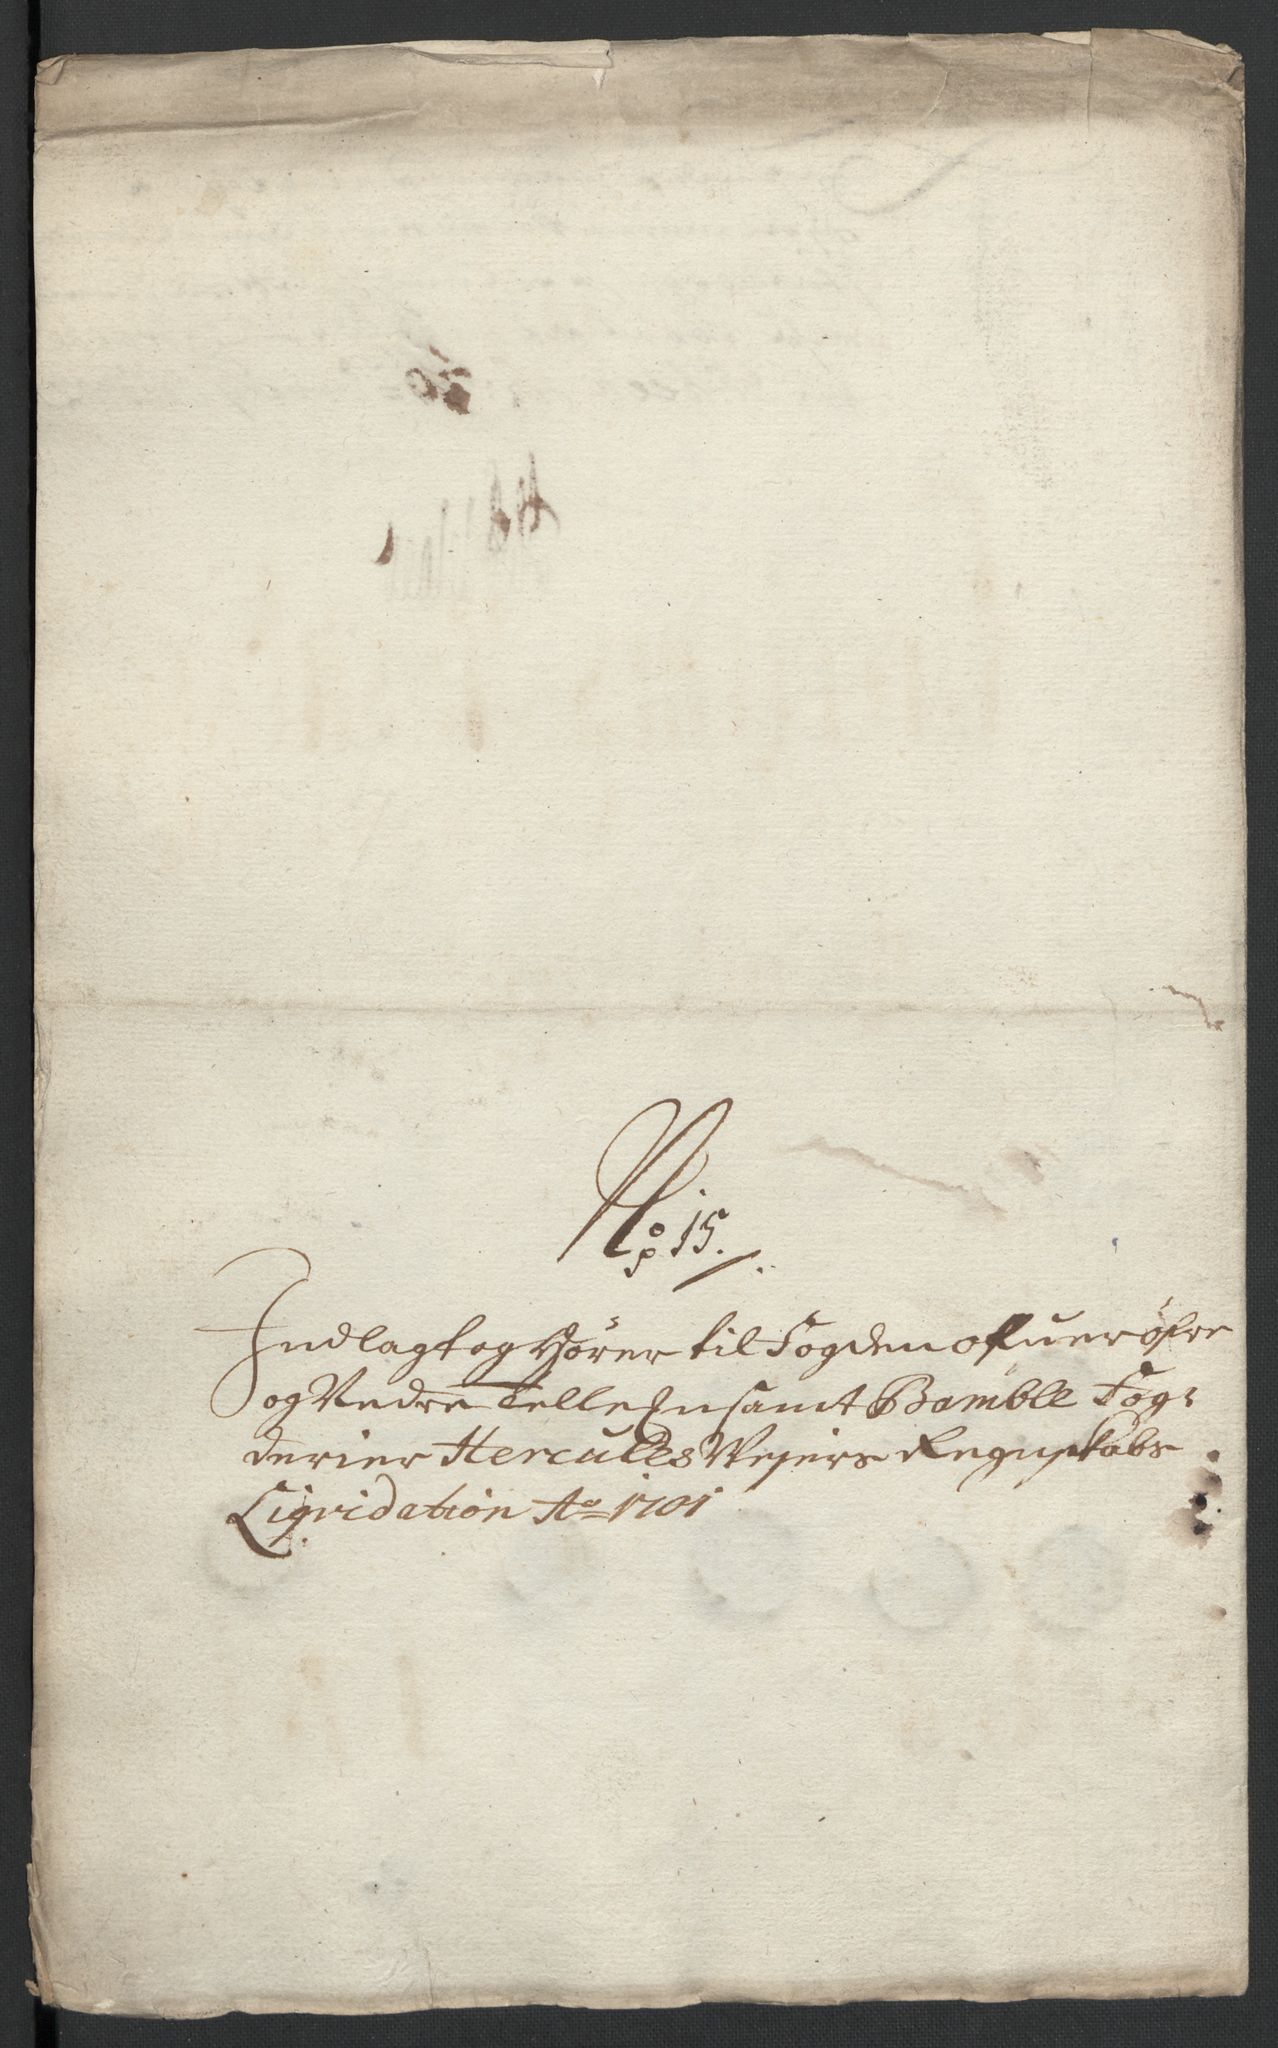 No: 15.
Indlagt og Hører til Fogden ofuer øfre
og Nedre Tellen samt Bamble Fog-
derier Hercules Weyers Regnskabs
Liqvidation Ao 1701